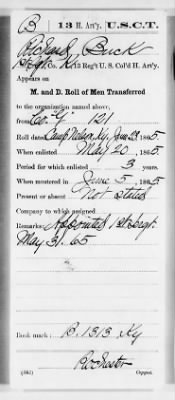 B | 13 H. Art'y. | U.S.C.T.
Richard Buck
Sgt, Co. K, 13 Reg't U. S. Col'd H. Art'y.
Appears on
M. and D. Roll of Men Transferred
to the organization named above,
from Co. G. 121
Roll dated Camp Nelson, Ky, June 23, 1865.
When enlisted May 20, 1865.
Period for which enlisted 3 years.
When mustered in June 5, 1865.
Present or absent Not stated
Company to which assigned
Remarks: Appointed 1st Sergt.
May 31, 65
Book mark: B. 1313 Ky
Rochester
(361) Copyist.